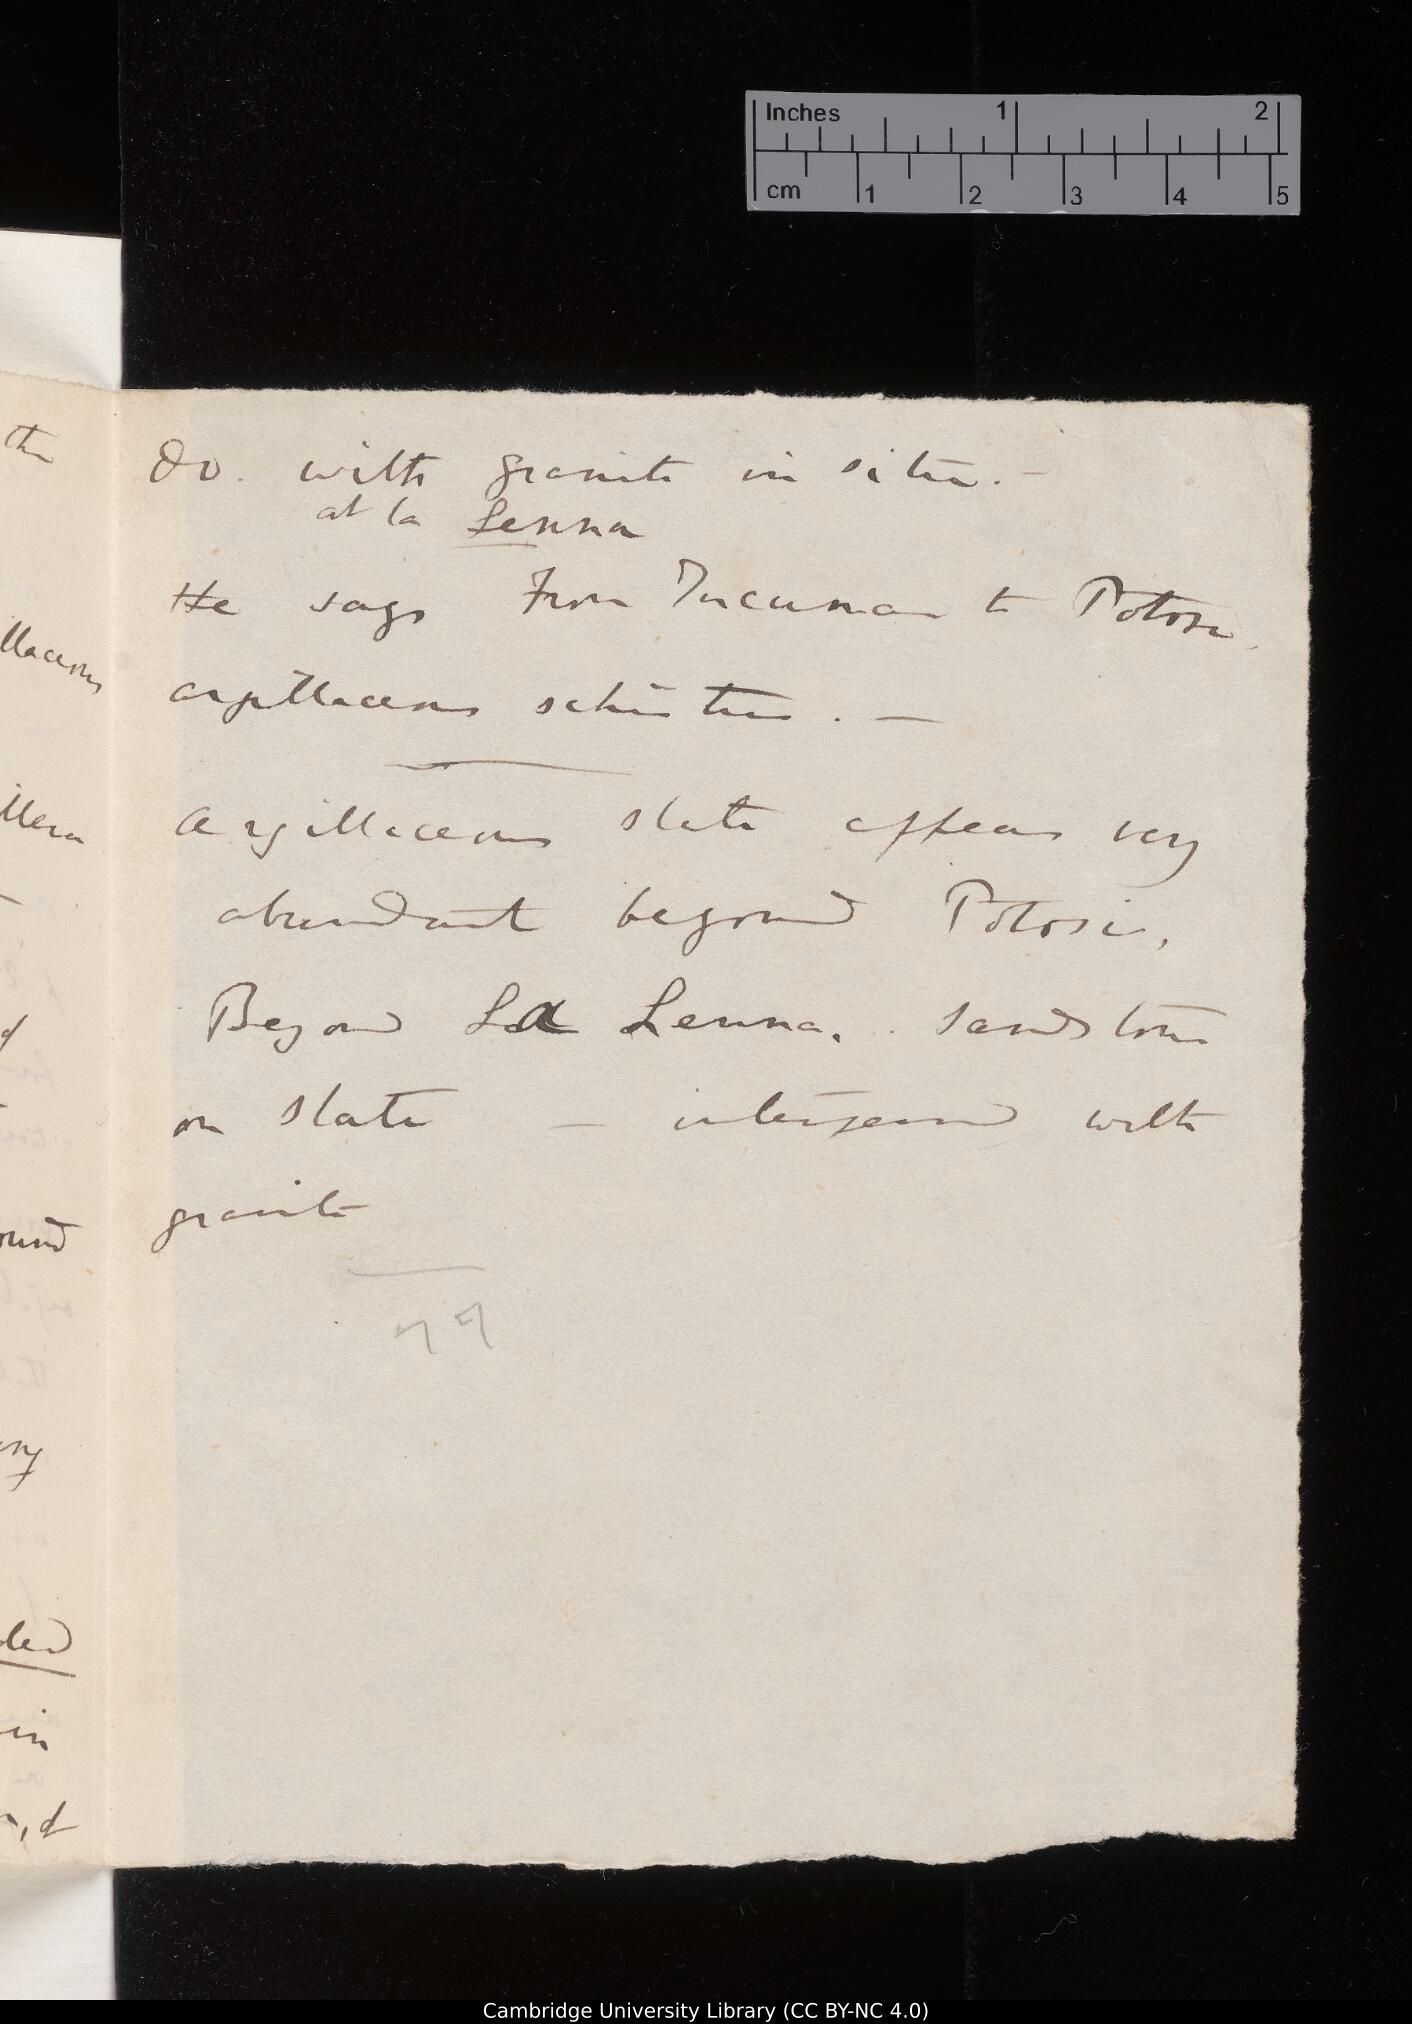 Inches 1 2
cm 1 2 3 4 5
the
Do. with granite in situ. —
at la Lenna
He says From Tucuman to Potosi
llaceous
argillaceous schistus. —
llera
Argillaceous slate appears very
abundant beyond Potosi,
Beyond La Lenna. sandstone
on slate — interspersed with
ound
granite
77
led
in
Cambridge University Library (CC BY-NC 4.0)